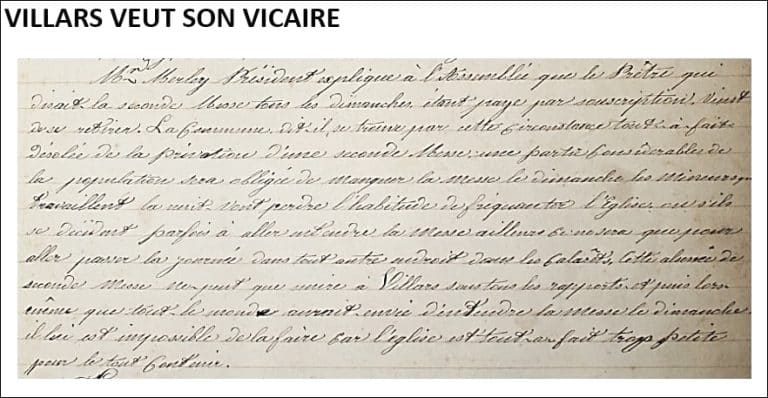 VILLARS VEUT SON VICAIRE
Mr Merley Président explique à l'Assemblée que le Prêtre qui
disait la seconde Messe tous les dimanches, étant payé par souscription, vient
de se retirer. La Commune dit il se trouve par cette circonstance tout à fait
désolée de la privation d'une seconde Messe; une partie Considérable de
la population sera obligée de manquer la messe le dimanche les Mineurs qui
travaillent la nuit vont perdre l'habitude de fréquenter l'Eglise, ou s'ils
se décident parfois à aller entendre la Messe ailleurs ce ne sera que pour
aller passer la journée dans tout autre endroit dans les Cabarets, Cette absence de
seconde Messe ne peut que nuire à Villars sous tous les rapports et puis lors
même que tout le monde aurait envie d'entendre la messe le dimanche
il lui est impossible de la faire Car l'église est tout à fait trop petite
pour le tout Contenir.